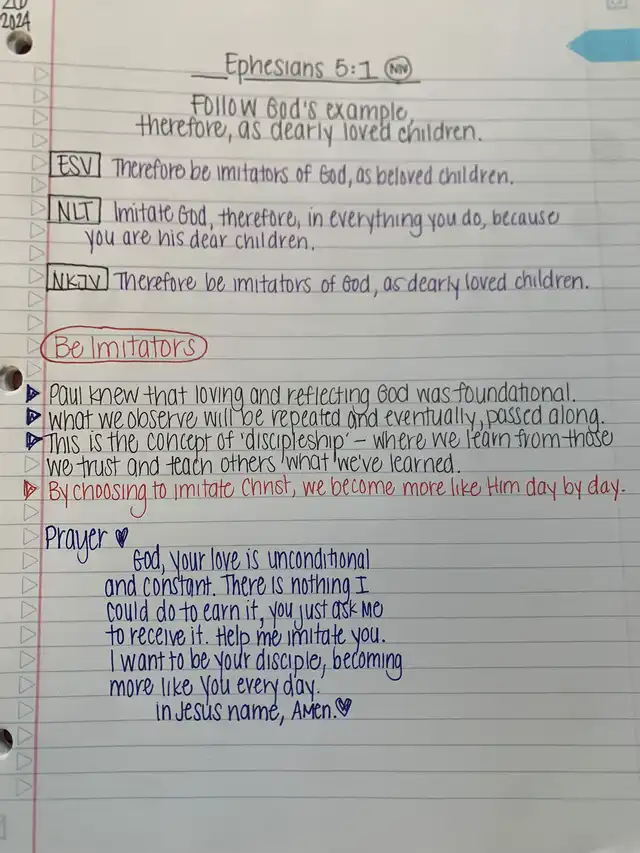 2024
Ephesians 5:1 NIV
Follow God's example,
therefore, as dearly loved children.
ESV Therefore be imitators of God, as beloved children.
NLT Imitate God, therefore, in everything you do, because
you are his dear children.
NKJV Therefore be imitators of God, as dearly loved children.
Be Imitators
Paul knew that loving and reflecting God was foundational.
what we observe will be repeated and eventually, passed along.
This is the concept of 'discipleship' – where we learn from those
we trust and teach others what we've learned.
By choosing to imitate Christ, we become more like Him day by day.
Prayer
God, your love is unconditional
and constant. There is nothing I
could do to earn it, you just ask me
to receive it. Help me imitate you.
I want to be your disciple, becoming
more like you every day.
in Jesus name, Amen.